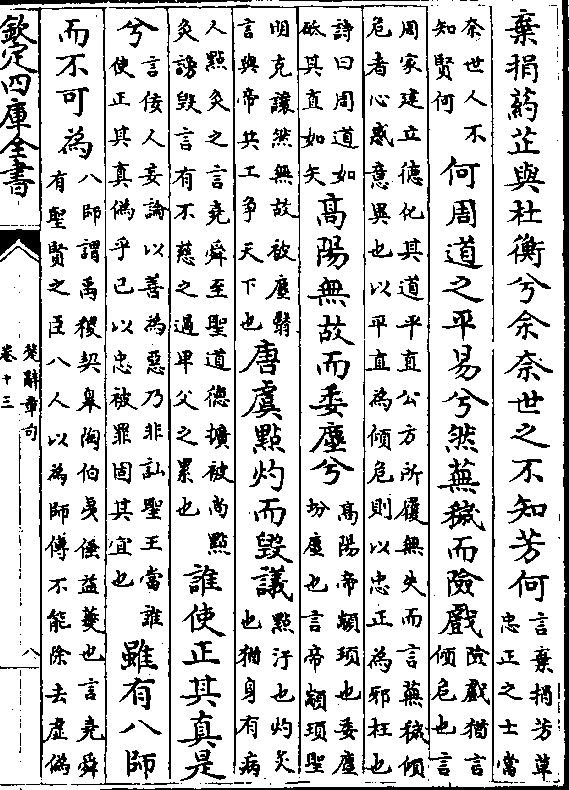 棄捐葯芷與杜衡兮余奈世之不知芳何
言棄捐芳草
忠正之士當
奈世人不
知賢何
何周道之平易兮然蕪穢而險戲
險戲猶言
傾危也言
周家建立德化其道平直公方所履無失而言蕪穢傾
危者心惑意異也以平直為傾危則以忠正為邪枉也
詩曰周道如
砥其直如矢
高陽無故而委塵兮
高陽帝顓頊也委塵
坋塵也言帝顓頊聖
明克讓然無故被塵翳
言與帝共工争天下也
唐虞點灼而毀議
點汙也灼灸
也猶身有病
人點灸之言堯舜至聖道德擴被尚點
灸謗毀言有不慈之過卑父之累也
誰使正其真是
兮
言佞人妄論以善為惡乃非訕聖王當誰
使正其真偽乎已以忠被罪固其宜也
雖有八師
而不可為
八師謂禹稷契臯陶伯夷倕益夔也言堯舜
有聖賢之臣八人以為師傅不能除去虛偽
欽定四庫全書
楚辭章句
卷十三
八